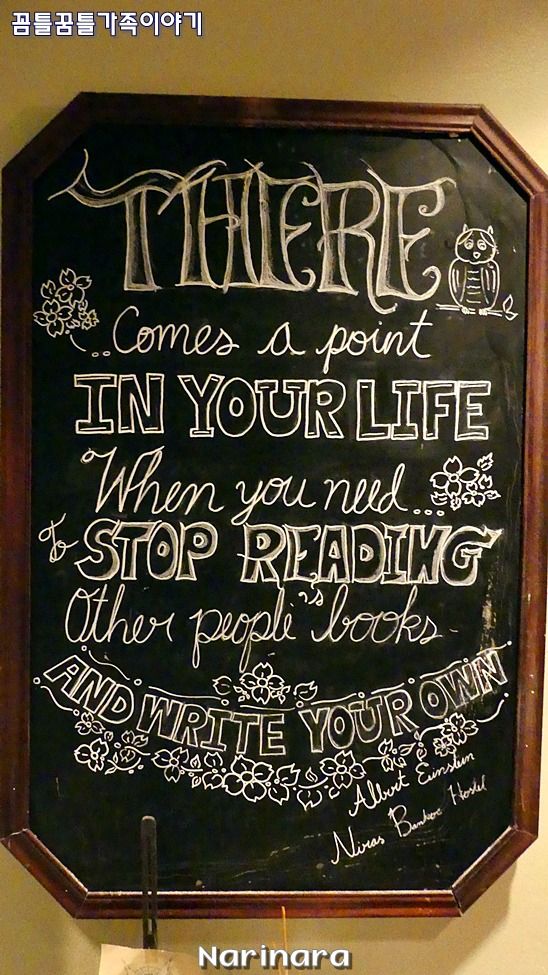 꼼틀꿈틀가족이야기
THERE
..Comes a point
IN YOUR LIFE
When you need...
To STOP READING
Other people's books
AND WRITE YOUR OWN
Albert Einstein
Niras Bankoc Hostel
Narinara